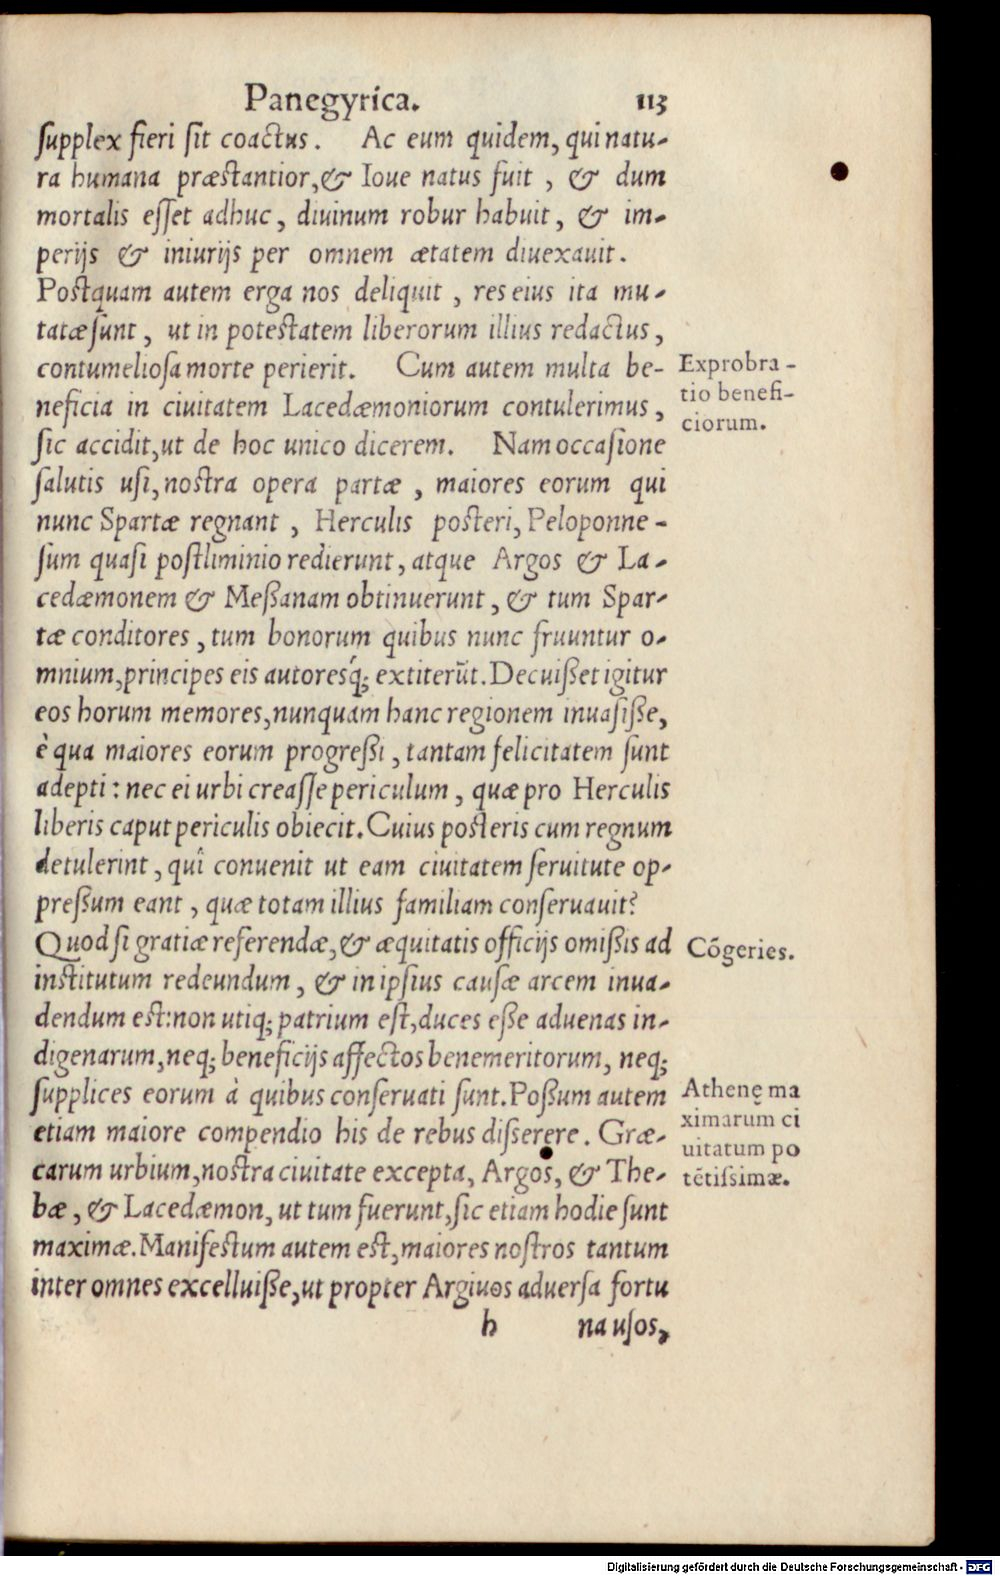 Panegyrica. 113
ſupplex fieri ſit coactus. Ac eum quidem, qui natu-
ra humana præstantior, & Ioue natus fuit, & dum
mortalis eſſet adhuc, diuinum robur habuit, & im-
perijs & iniurijs per omnem ætatem diuexauit.
Postquam autem erga nos deliquit, res eius ita mu-
tatæ ſunt, ut in potestatem liberorum illius redactus,
contumelioſa morte perierit. Cum autem multa be-
neficia in ciuitatem Lacedæmoniorum contulerimus,
ſic accidit, ut de hoc unico dicerem. Nam occaſione
ſalutis uſi, nostra opera partæ, maiores eorum qui
nunc Spartæ regnant, Herculis posteri, Peloponne-
ſum quaſi postliminio redierunt, atque Argos & La-
cedæmonem & Meßanam obtinuerunt, & tum Spar-
tæ conditores, tum bonorum quibus nunc fruuntur o-
mnium, principes eis autoresq́; extiterũt. Decuißet igitur
eos horum memores, nunquam hanc regionem inuaſiße,
è qua maiores eorum progreßi, tantam felicitatem ſunt
adepti: nec ei urbi creaſſe periculum, quæ pro Herculis
liberis caput periculis obiecit. Cuius posteris cum regnum
detulerint, quî conuenit ut eam ciuitatem ſeruitute op-
preßum eant, quæ totam illius familiam conſeruauit?
Quod ſi gratiæ referendæ, & æquitatis officijs omißis ad
institutum redeundum, & in ipſius cauſæ arcem inua-
dendum est: non utiq; patrium eſt, duces eße aduenas in-
digenarum, neq; beneficijs affectos benemeritorum, neq;
ſupplices eorum à quibus conſeruati ſunt. Poßum autem
etiam maiore compendio his de rebus diſſerere. Græ-
carum urbium, nostra ciuitate excepta, Argos, & The-
bæ, & Lacedæmon, ut tum fuerunt, ſic etiam hodie ſunt
maximæ. Manifestum autem est, maiores noſtros tantum
inter omnes excelluiße, ut propter Argiuos aduerſa fortu
h na uſos,
Exprobra-
tio benefi-
ciorum.
Cõgeries.
Athenę ma
ximarum ci
uitatum po
tẽtiſsimæ.
Digitalisierung gefördert durch die Deutsche Forschungsgemeinschaft - DFG